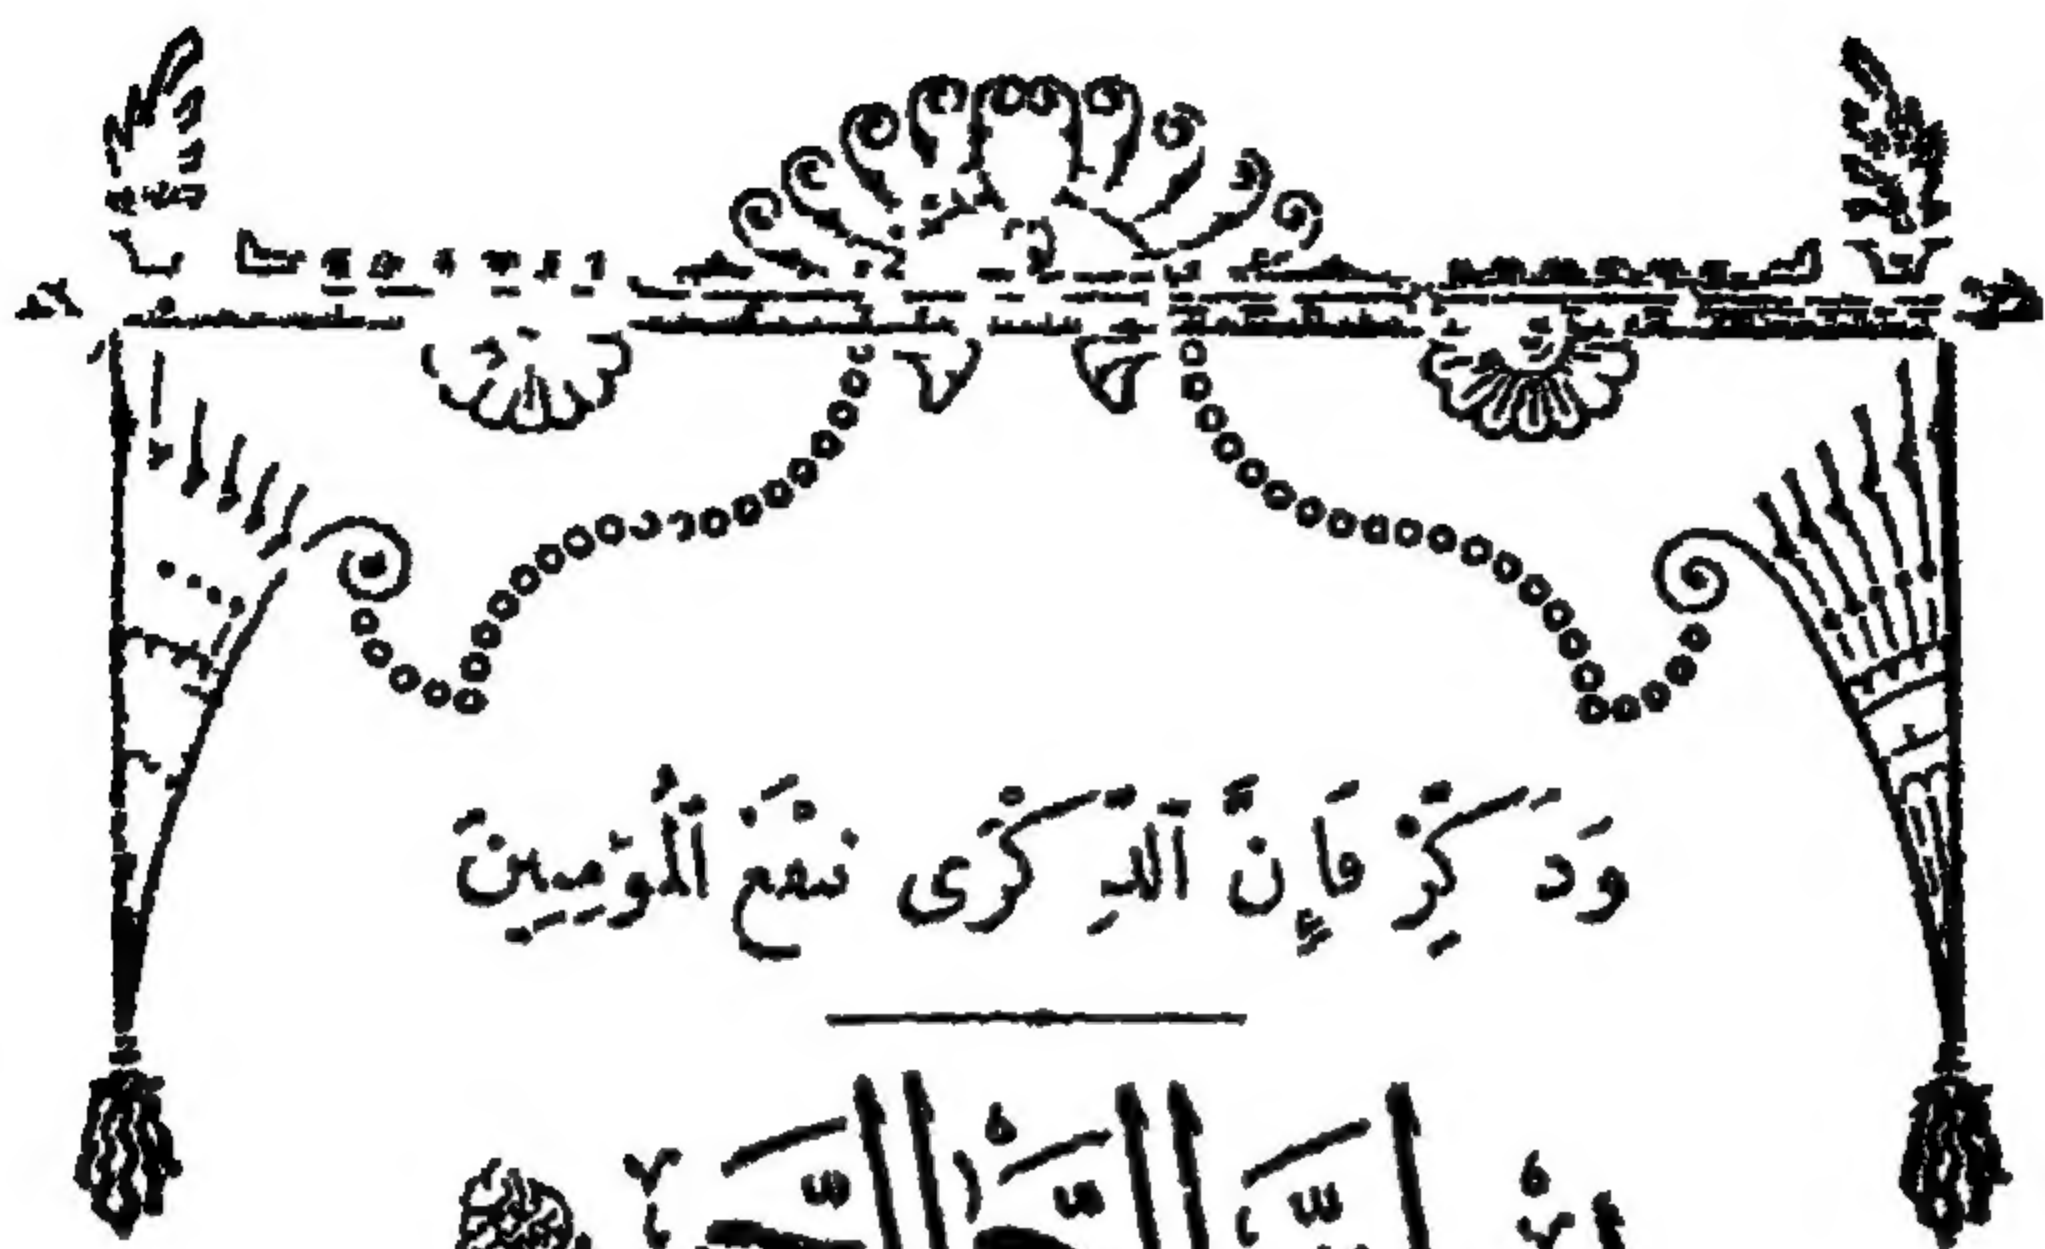 وَذَكِّرْ فَإِنَّ ٱلذِّكْرَى تَنْفَعُ ٱلْمُؤْمِنِينَ